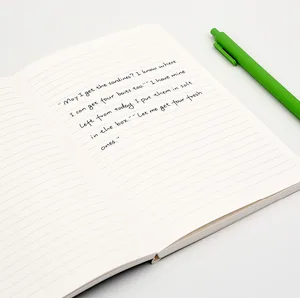 "May I get the sardines? I know where
I can get four baits too." "I have mine
left from today. I put them in salt
in the box." "Let me get four fresh
ones."